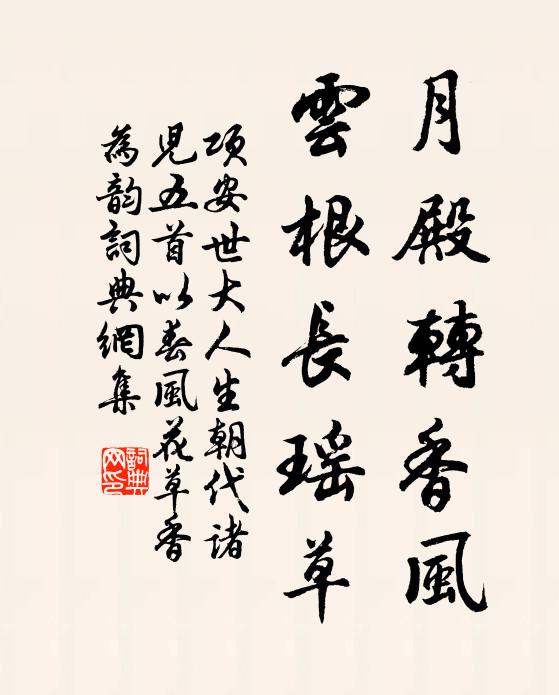 月殿轉香風
雲根長瑶草
項安世大人生朝代諸
児五首以春風花草香
為韵詞典網集
詞典
网印